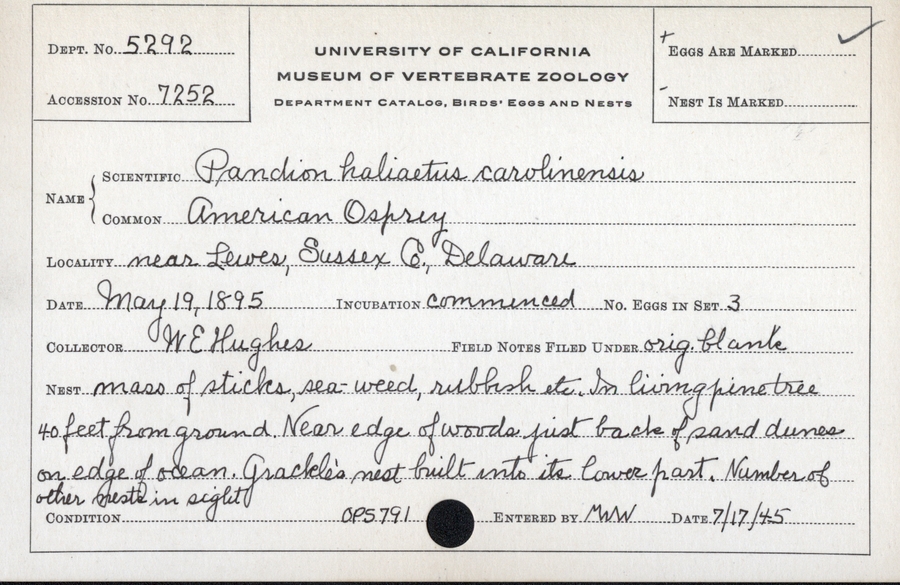 DEPT. NO. 5292
ACCESSION NO. 7252
UNIVERSITY OF CALIFORNIA
MUSEUM OF VERTEBRATE ZOOLOGY
DEPARTMENT CATALOG, BIRDS' EGGS AND NESTS
+ EGGS ARE MARKED ✓
- NEST IS MARKED
NAME { SCIENTIFIC Pandion haliaetus carolinensis
COMMON American Osprey
LOCALITY near Lewes, Sussex Co., Delaware
DATE May 19, 1895 INCUBATION commenced NO. EGGS IN SET 3
COLLECTOR W E Hughes FIELD NOTES FILED UNDER orig. blank
NEST mass of sticks, sea-weed, rubbish etc. In living pine tree
40 feet from ground. Near edge of woods just back of sand dunes
on edge of ocean. Grackle's nest built into its lower part. Number of
other nests in sight
CONDITION OPS791 ENTERED BY MWW DATE 7/17/45